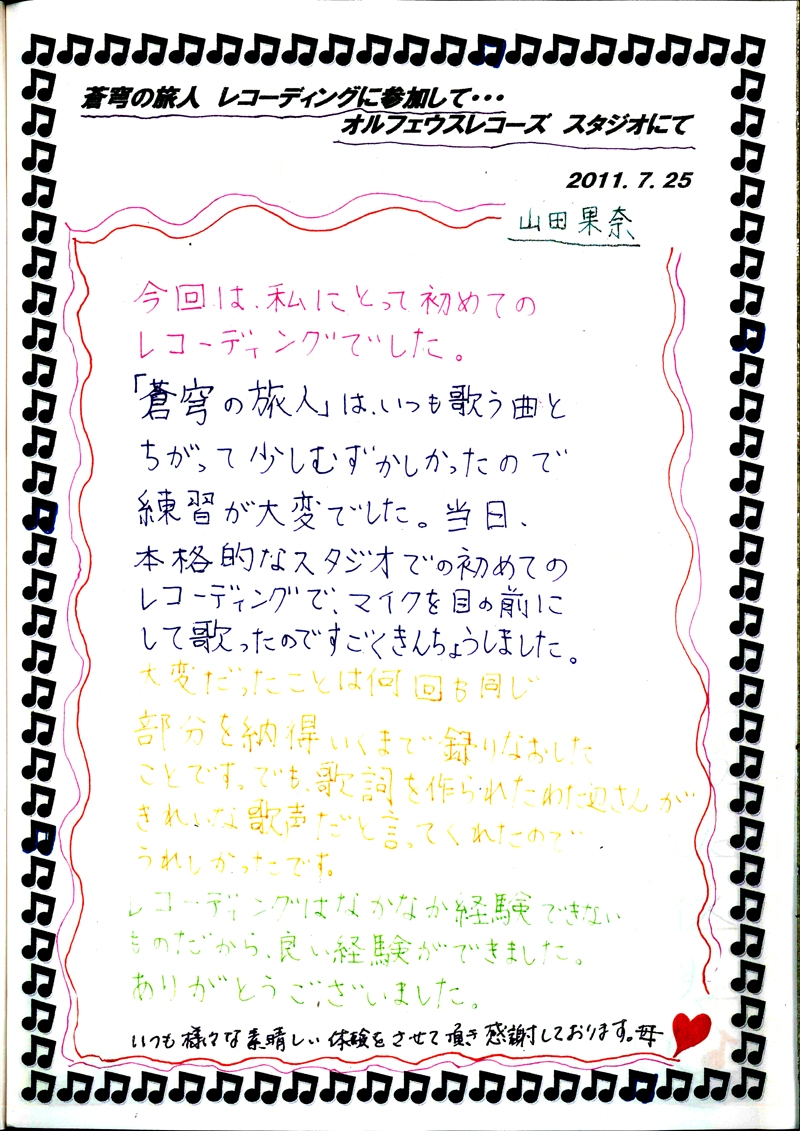 蒼穹の旅人 レコーディングに参加して・・・
オルフェウスレコーズ スタジオにて
2011.7.25
山田果奈
今回は、私にとって初めての
レコーディングでした。
「蒼穹の旅人」は、いつも歌う曲と
ちがって少しむずかしかったので
練習が大変でした。当日、
本格的なスタジオでの初めての
レコーディングで、マイクを目の前に
して歌ったのですごくきんちょうしました。
大変だったことは何回も同じ
部分を納得いくまで録りなおした
ことです。でも、歌詞を作られたわた辺さんが
きれいな歌声だと言ってくれたので
うれしかったです。
レコーディングはなかなか経験できない
ものだから、良い経験ができました。
ありがとうございました。
いつも様々な素晴しい体験をさせて頂き感謝しております。母